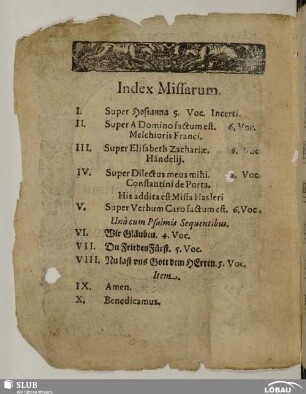 Index Missarum.
I. Super Hosianna 5. Voc. Incerti.
II. Super A Domino factum est. 6. Voc.
Melchioris Franci.
III. Super Elisabeth Zachariæ. 6. Voc.
Händelij.
IV. Super Dilectus meus mihi. Voc.
Constantini de Porta.
His addita est Missa Hasleri
V. Super Verbum Caro factum est. 6. Voc.
Unà cum Psalmis Sequentibus.
VI. Wir Gläuben. 4. Voc.
VII. Du FriedenFürst. 5. Voc.
VIII. Nu last vns Gott dem HErren. 5. Voc.
Item.
IX. Amen.
X. Benedicamus.
SLUB
Wir führen Wissen.
LÖBAU